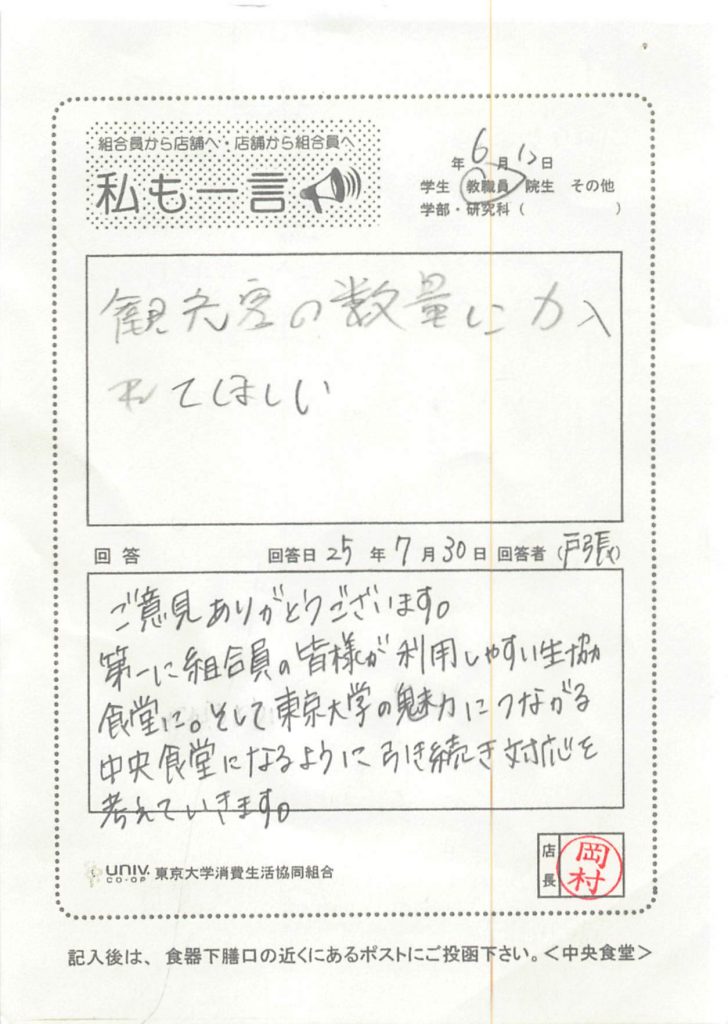 組合員から店舗へ・店舗から組合員へ
私も一言
年 6 月 12 日
学生 教職員 院生 その他
学部・研究科( )
観光客の数量に力入
れてほしい
回答 回答日 25 年 7 月 30 日 回答者 (戸張)
ご意見ありがとうございます。
第一に組合員の皆様が利用しやすい生協
食堂に。そして東京大学の魅力につながる
中央食堂になるように引き続き対応を
考えていきます。
UNIV. CO-OP 東京大学消費生活協同組合
店長 岡村
記入後は、食器下膳口の近くにあるポストにご投函下さい。<中央食堂>